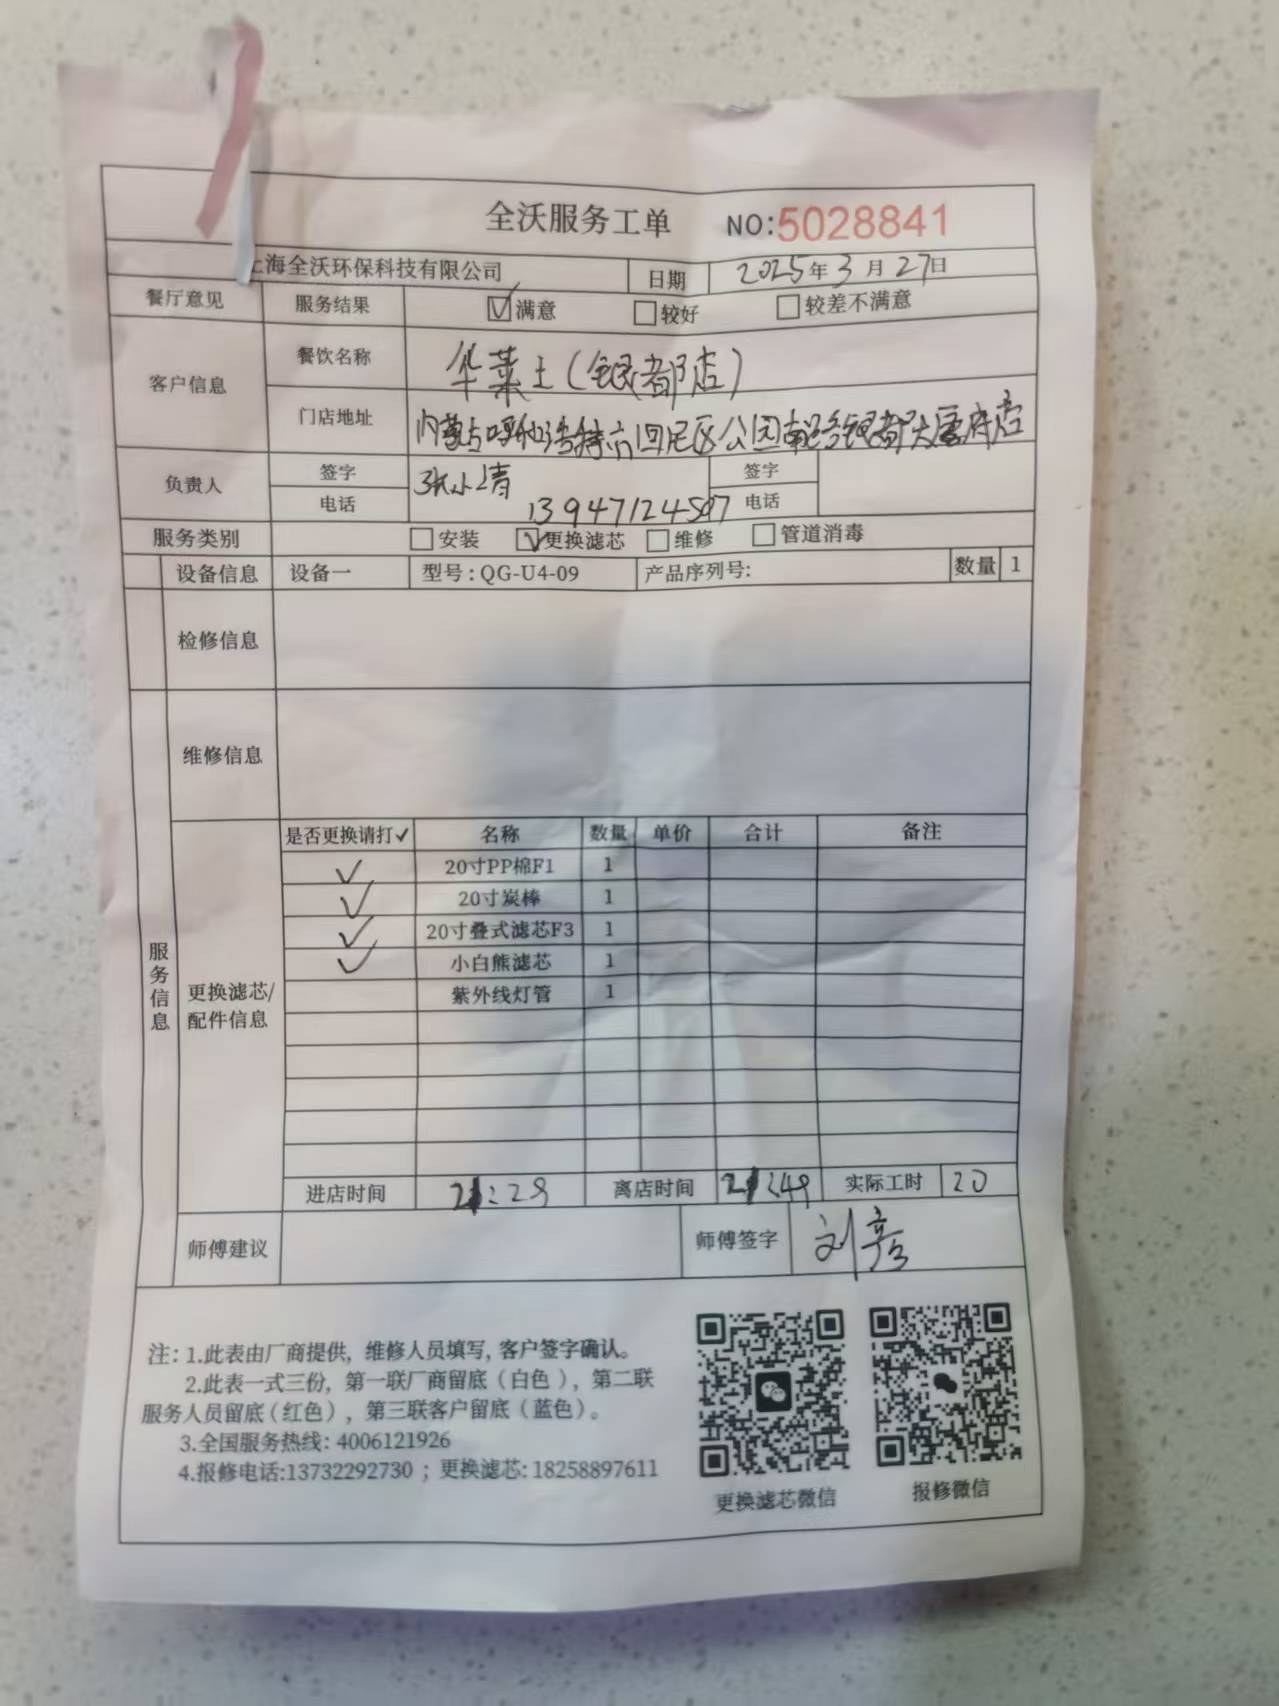 全沃服务工单 NO:5028841
上海全沃环保科技有限公司 日期 2025年3月27日
餐厅意见 服务结果 ☑满意 □较好 □较差不满意
客户信息 餐饮名称 华莱士(银都店)
门店地址 内蒙古呼和浩特市回民区公园南路银都大厦
负责人 签字 签字
电话 13947124507 电话
服务类别 □安装 ☑更换滤芯 □维修 □管道消毒
设备信息 设备一 型号:QG-U4-09 产品序列号: 数量 1
检修信息
维修信息
服务信息
更换滤芯/
配件信息
是否更换请打✓ 名称 数量 单价 合计 备注
✓ 20寸PP棉F1 1
✓ 20寸炭棒 1
✓ 20寸叠式滤芯F3 1
✓ 小白熊滤芯 1
紫外线灯管 1
进店时间 21:29 离店时间 21:49 实际工时 20
师傅建议 师傅签字 刘彦
注:1.此表由厂商提供,维修人员填写,客户签字确认。
2.此表一式三份,第一联厂商留底(白色),第二联
服务人员留底(红色),第三联客户留底(蓝色)。
3.全国服务热线:4006121926
4.报修电话:13732292730;更换滤芯:18258897611
更换滤芯微信 报修微信